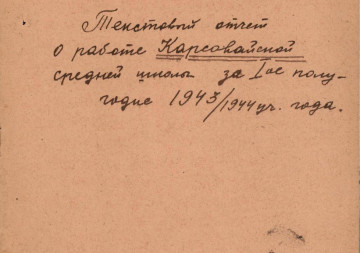 Текстовый отчет
о работе Карсовайской
средней школы за I ое полу-
годие 1943/1944 уч. года.